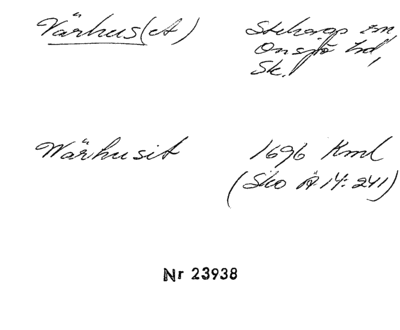 Värhus(et)
Stehags sn,
Onsjö hd,
Sk.
Wärhusit
1696 Kml
(Sko Ä 14: 241)
Nr 23938